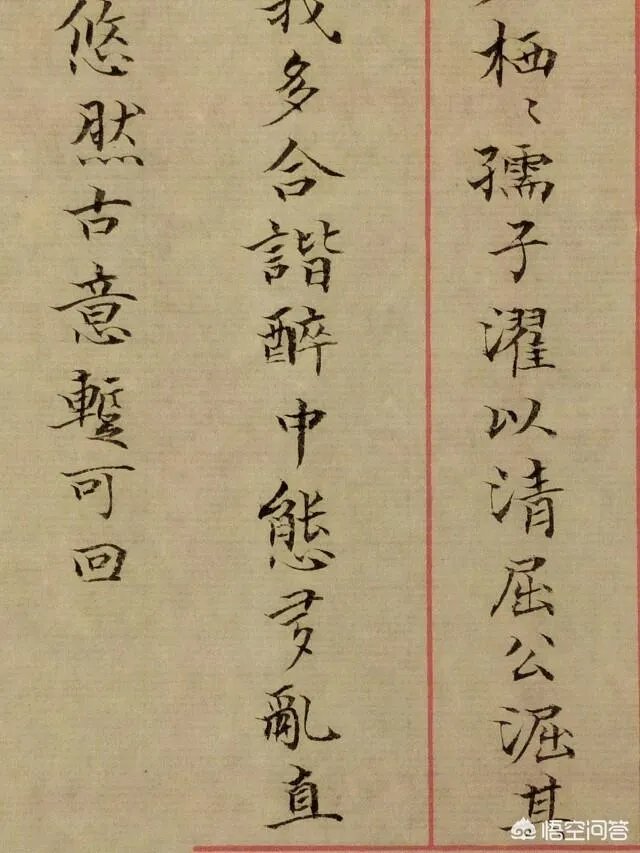 栖〻孺子濯以清屈公淈其
我多合諧醉中態夛亂直
悠然古意蹔可回
悟空问答